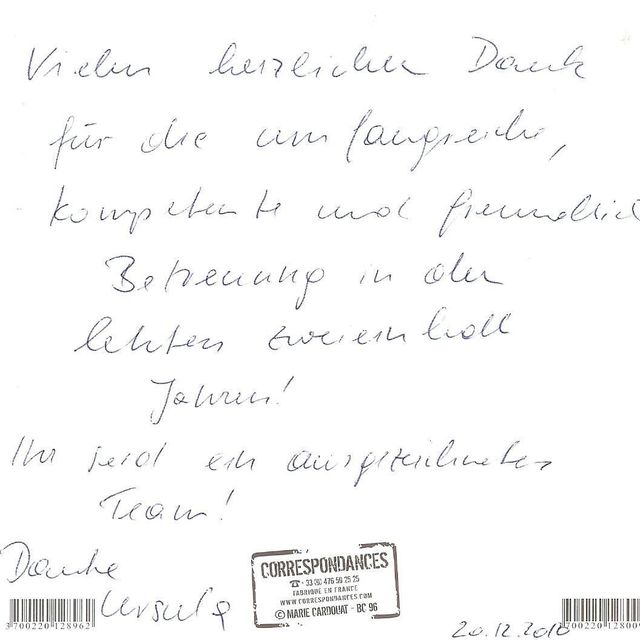 Vielen herzlichen Dank
für die umfangreiche,
kompetente und freundlich
Betreuung in den
letzten zweieinhalb
Jahren!
Ihr seid ein ausgezeichnetes
Team!
Danke
Ursula
CORRESPONDANCES
☎ + 33 (0) 476 50 25 25
FABRIQUÉ EN FRANCE
WWW.CORRESPONDANCES.COM
© MARIE CARDOUAT - BC 96
20.12.201
3700220 128962
700220 12800